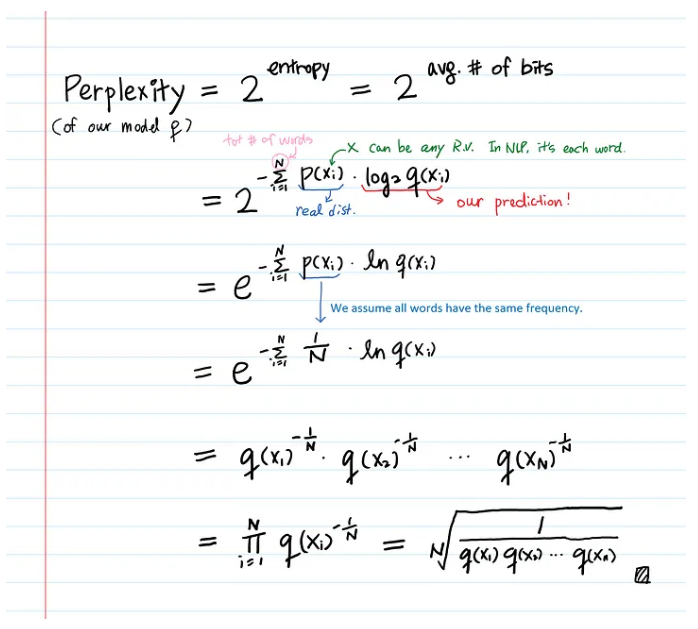 Perplexity = 2^entropy = 2^avg. # of bits
(of our model q)
tot # of words
x can be any R.V. In NLP, it's each word.
= 2^-Σ_{i=1}^{N} p(xᵢ) · log₂ q(xᵢ)
real dist.
our prediction!
= e^-Σ_{i=1}^{N} p(xᵢ) · ln q(xᵢ)
We assume all words have the same frequency.
= e^-Σ_{i=1}^{N} 1/N · ln q(xᵢ)
= q(x₁)^-1/N · q(x₂)^-1/N ... q(x_N)^-1/N
= ∏_{i=1}^{N} q(xᵢ)^-1/N = N√(1 / q(x₁) q(x₂) ... q(xₙ))